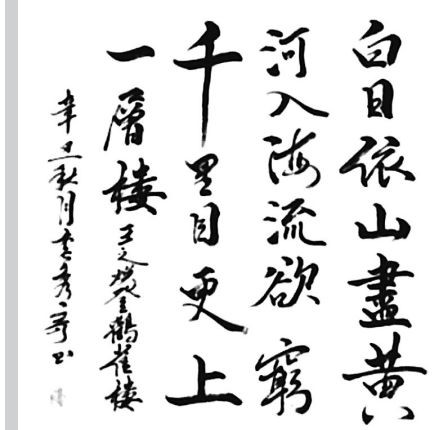 白日依山盡黄
河入海流欲窮
千里目更上
一層樓王之渙登鸛雀樓
辛丑秋月李秀奇书